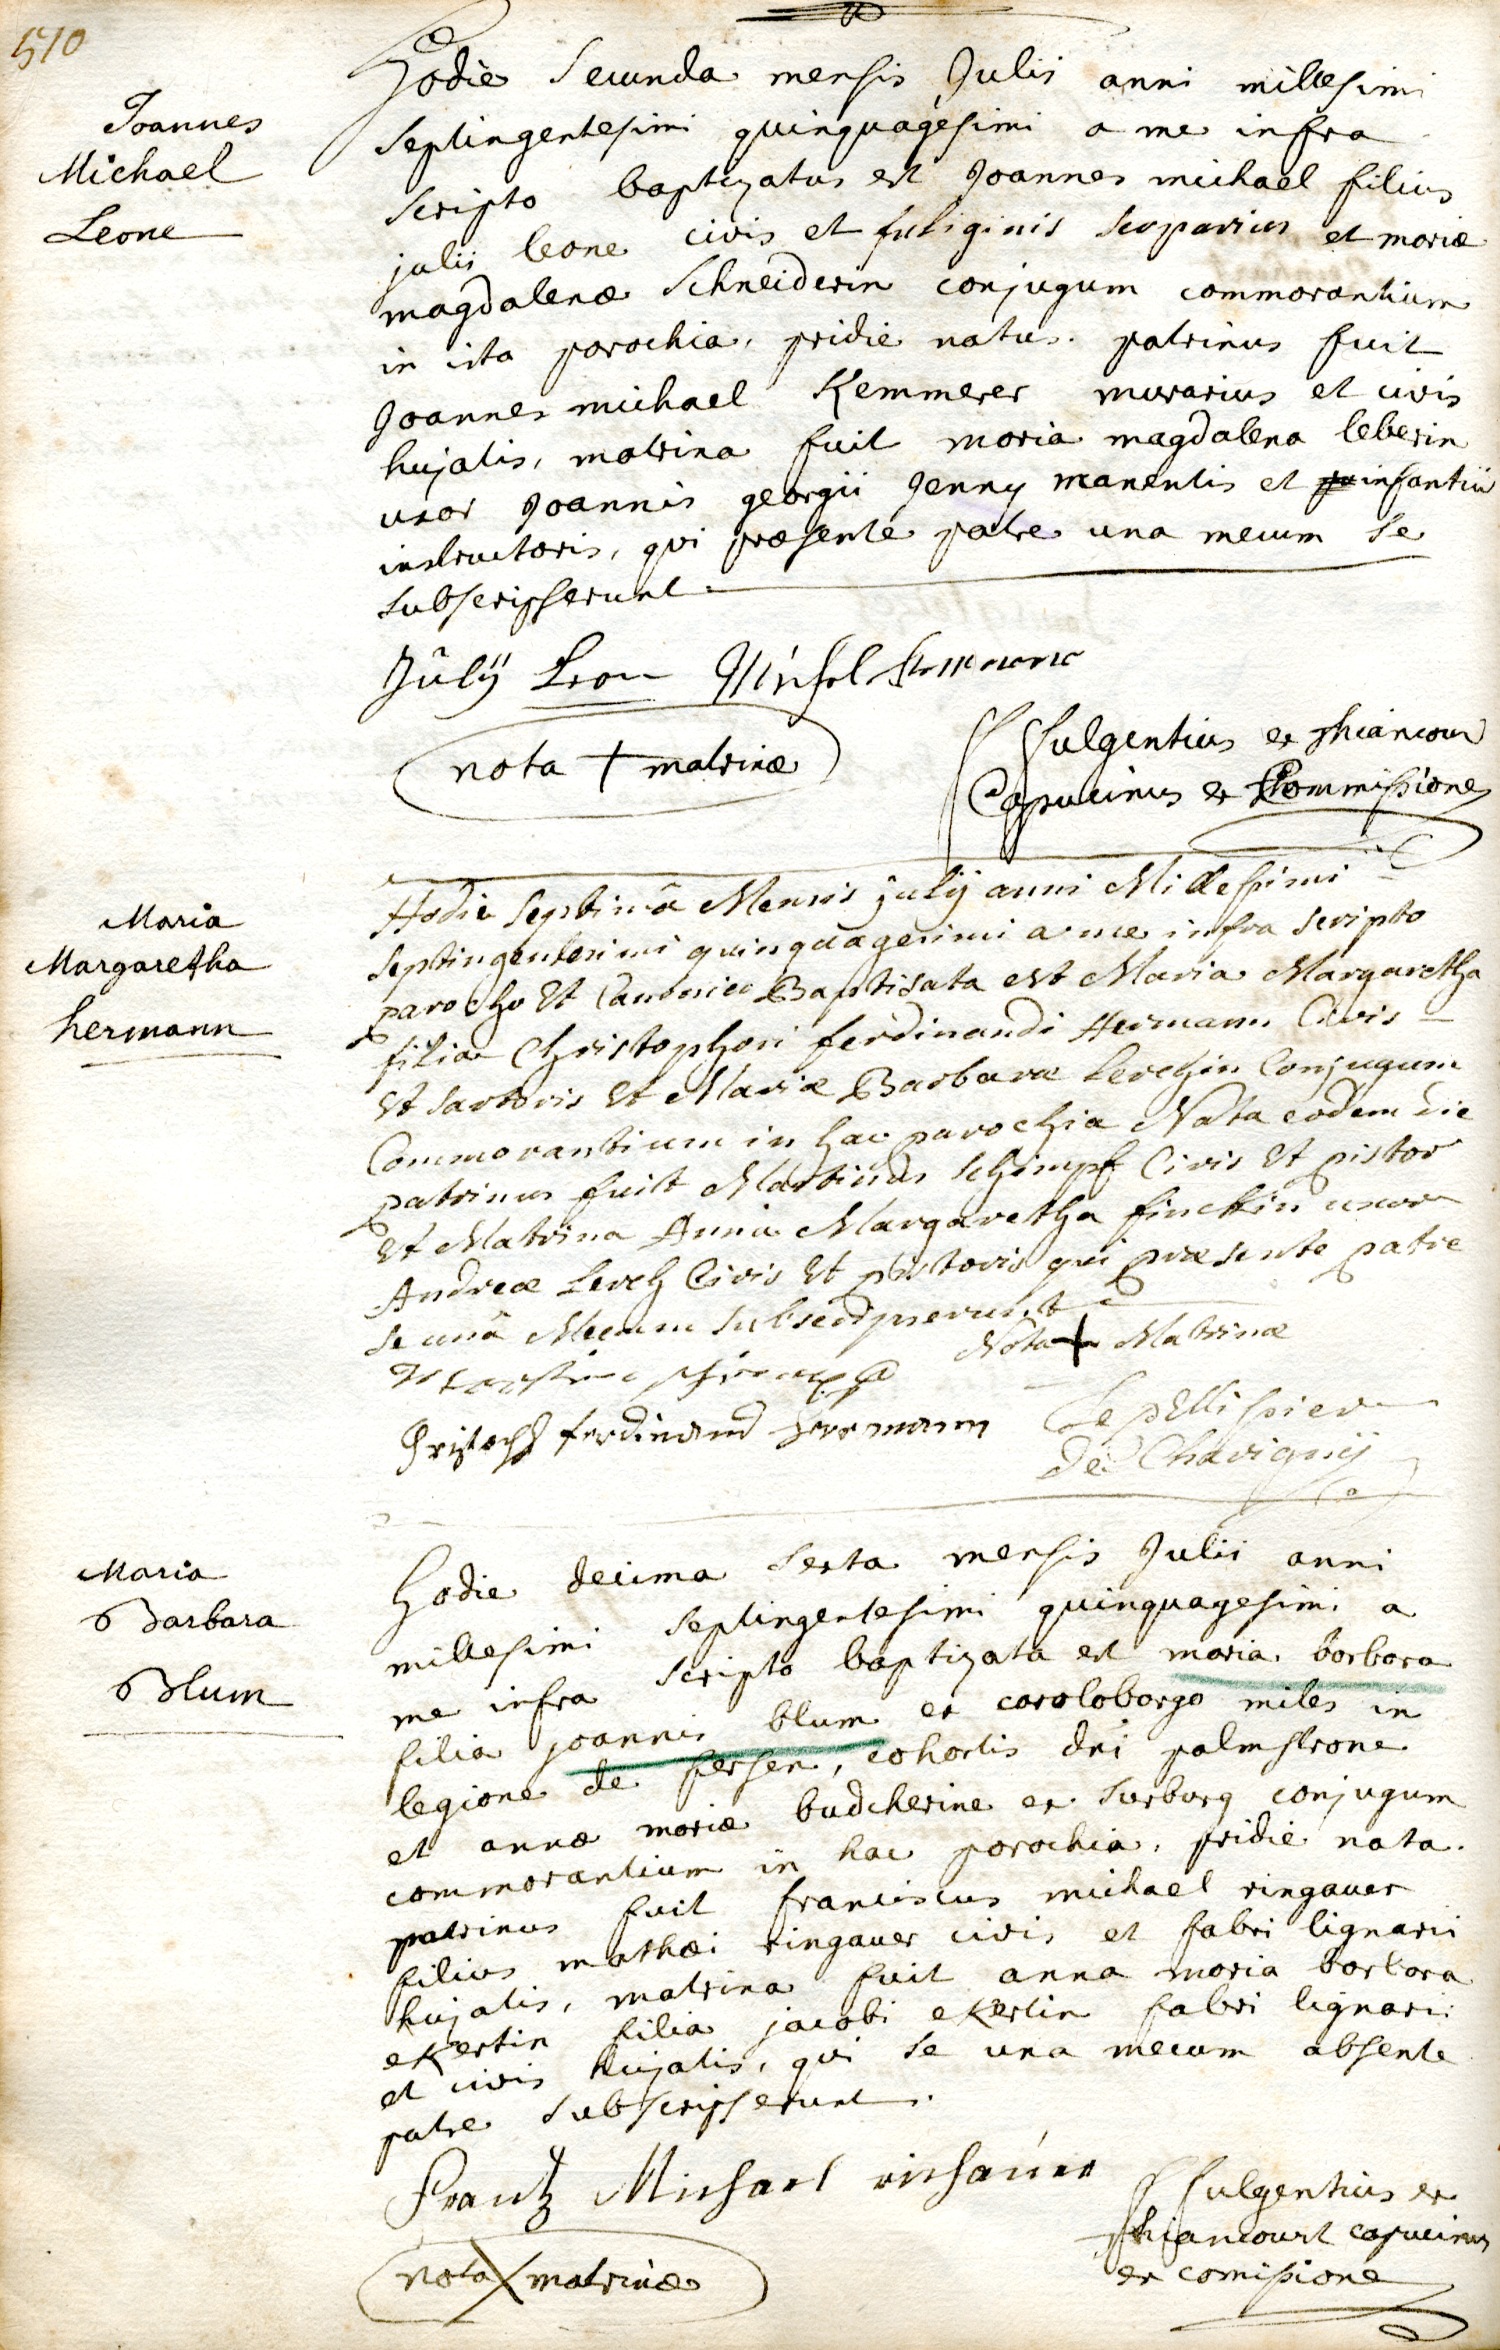 510
Joannes
Michael
Leone
Hodie Secunda mensis Julii anni millesimi
septingentesimi quinquagesimi a me infra
scripto baptizatus est Joannes michael filius
julii leone civis et fuliginis scoparius et mariæ
magdalenæ Schneiderin conjugum commorantium
in ista parochia, pridie natus. patrinus fuit
Joannes michael Kemmerer murarius et civis
hujatis, matrina fuit maria magdalena leberin
uxor Joannis georgii Jenny manentis et infantiū
instructoris, qui præsente patre una mecum se
subscripserunt
Julÿ Leon Michel
nota + matrinæ
f fulgentius ex thiancour
Capucinus ex Commissione
Maria
Margaretha
hermann
Hodie Septimâ Mensis julij anni Millesimi
septingentesimi quinquagesimi a me infra scripto
parocho Et Canonico Baptisata est Maria Margaretha
filia Christophori ferdinandi Hermann Civis
Et sartoris Et Mariæ Barbaræ Lerchin Conjugum
Commorantium in hac parochia Nata eodem die
patrinus fuit Martinus Schimpf Civis Et pistor
Et Matrina Anna Margaretha finckin uxor
Andreæ Lerch Civis Et pistoris qui præsente patre
se unâ Mecum subscripserunt
Nota + Matrinæ
Christoph ferdinand herrmann
Le pellissier
De Chavignÿ
Maria
Barbara
Blum
Hodie decima sexta mensis Julii anni
millesimi septingentesimi quinquagesimi a
me infra scripto baptizata est maria barbara
filia joannis blum ex caroloborgo miles in
legione de fersen, cohortis dni palmstrone
et annæ mariæ budcherine ex surburg conjugum
commorantium in hac parochia, pridie nata.
patrinus fuit franciscus michael ringauer
filius mathæi ringauer civis et fabri lignarii
hujatis, matrina fuit anna maria barbara
ekertin filia jacobi ekertin fabri lignarii
et civis hujatis, qui se una mecum absente
patre subscripserunt.
Frantz Michael
nota X matrinæ
f fulgentius ex
thiancourt capucinus
ex comissione